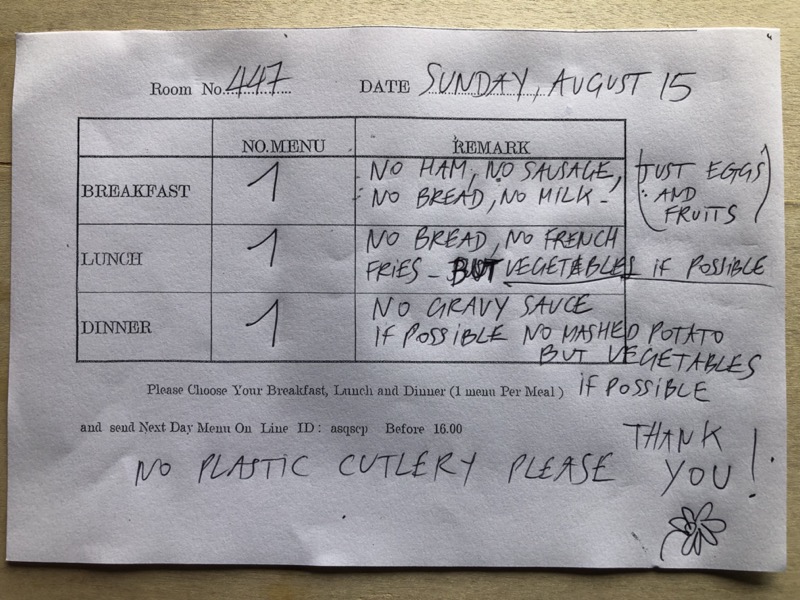 Room No. 447 DATE SUNDAY, AUGUST 15
NO.MENU REMARK
BREAKFAST 1 NO HAM, NO SAUSAGE,
NO BREAD, NO MILK -
(JUST EGGS
AND
FRUITS)
LUNCH 1 NO BREAD, NO FRENCH
FRIES - BUT VEGETABLES IF POSSIBLE
DINNER 1 NO GRAVY SAUCE
IF POSSIBLE NO MASHED POTATO
BUT VEGETABLES
IF POSSIBLE
Please Choose Your Breakfast, Lunch and Dinner (1 menu Per Meal)
and send Next Day Menu On Line ID: asqscp Before 16.00
THANK
YOU!
NO PLASTIC CUTLERY PLEASE